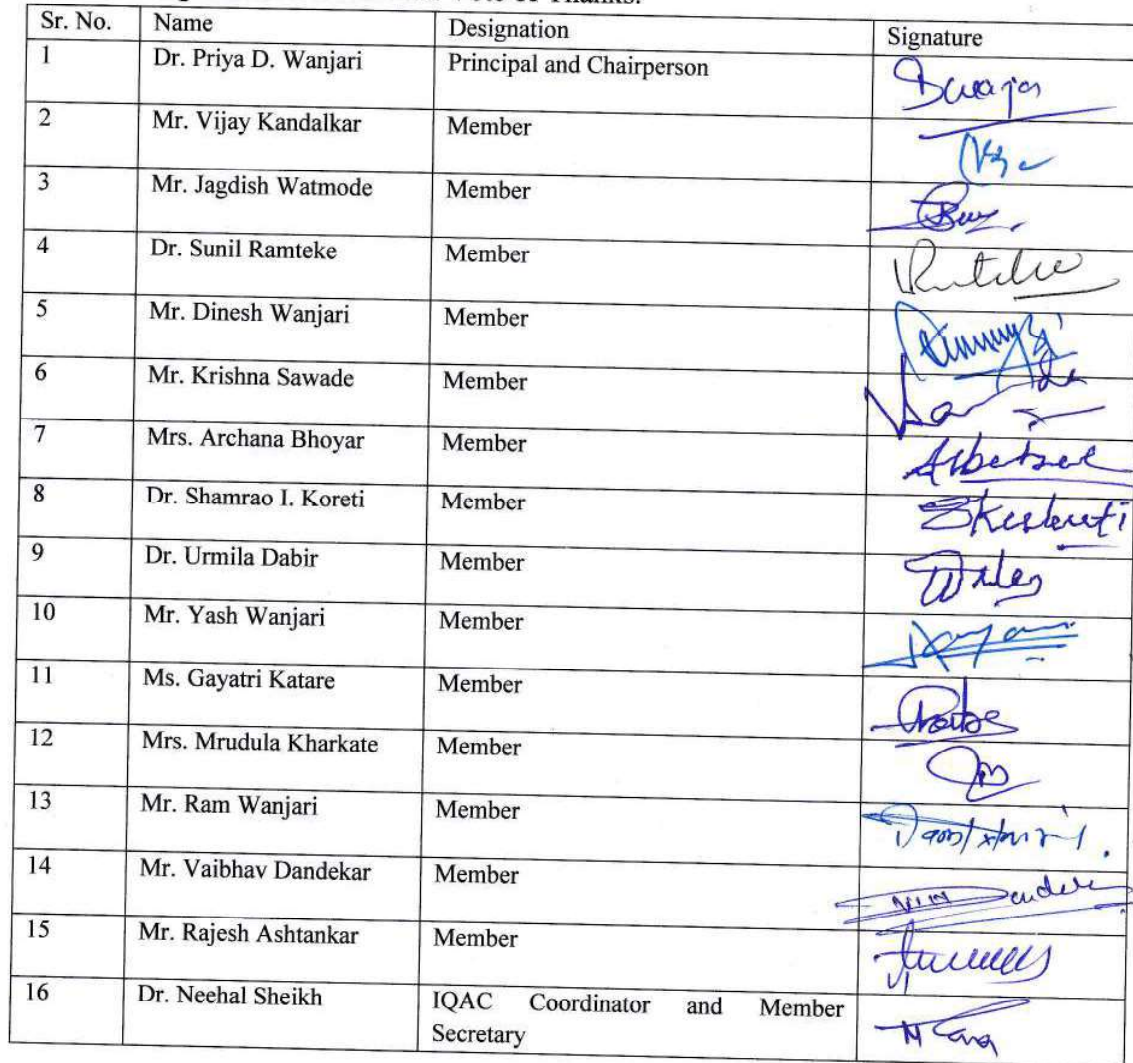 Vote of Thanks.
Sr. No. Name Designation Signature
1 Dr. Priya D. Wanjari Principal and Chairperson
2 Mr. Vijay Kandalkar Member
3 Mr. Jagdish Watmode Member
4 Dr. Sunil Ramteke Member
5 Mr. Dinesh Wanjari Member
6 Mr. Krishna Sawade Member
7 Mrs. Archana Bhoyar Member
8 Dr. Shamrao I. Koreti Member
9 Dr. Urmila Dabir Member
10 Mr. Yash Wanjari Member
11 Ms. Gayatri Katare Member
12 Mrs. Mrudula Kharkate Member
13 Mr. Ram Wanjari Member
14 Mr. Vaibhav Dandekar Member
15 Mr. Rajesh Ashtankar Member
16 Dr. Neehal Sheikh IQAC Coordinator and Member
Secretary